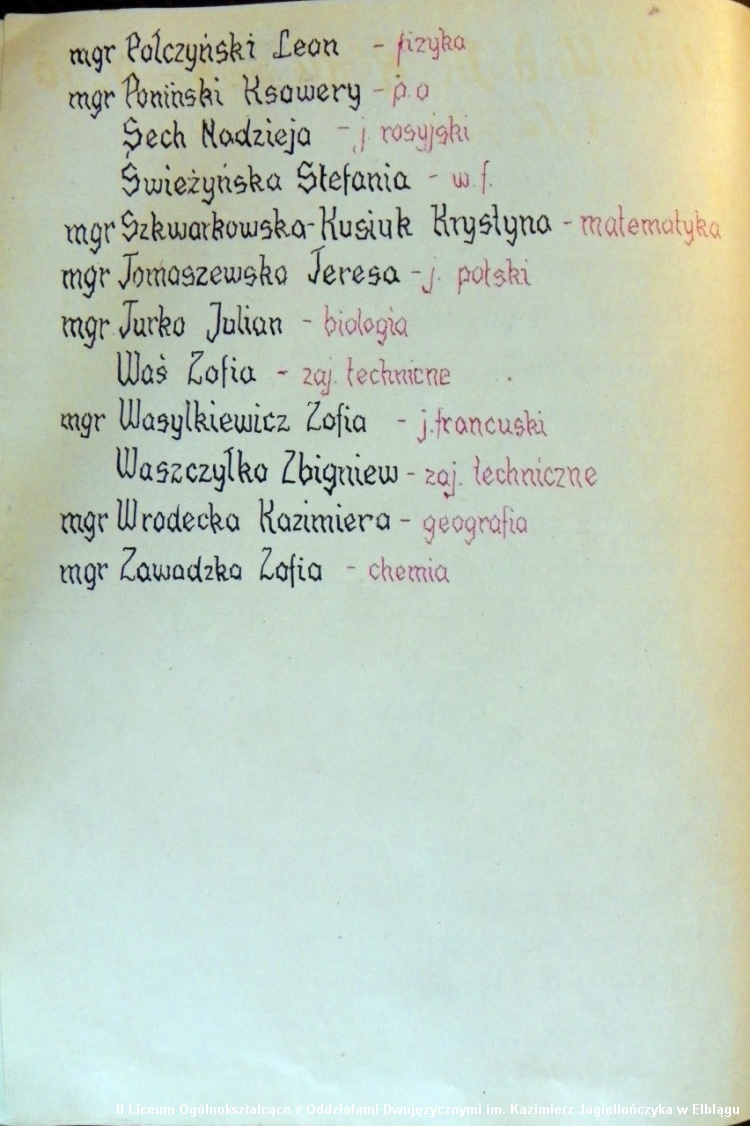 mgr Połczyński Leon - fizyka
mgr Poniński Ksawery - p.o
Sech Nadzieja - j. rosyjski
Świeżyńska Stefania - w.f.
mgr Szkwarkowska-Kusiuk Krystyna - matematyka
mgr Tomaszewska Teresa - j. polski
mgr Turko Julian - biologia
Waś Zofia - zaj. techniczne
mgr Wasylkiewicz Zofia - j. francuski
Waszczyłko Zbigniew - zaj. techniczne
mgr Wrodecka Kazimiera - geografia
mgr Zawadzka Zofia - chemia
II Liceum Ogólnokształcące z Oddziałami Dwujęzycznymi im. Kazimierz Jagiellończyka w Elblągu